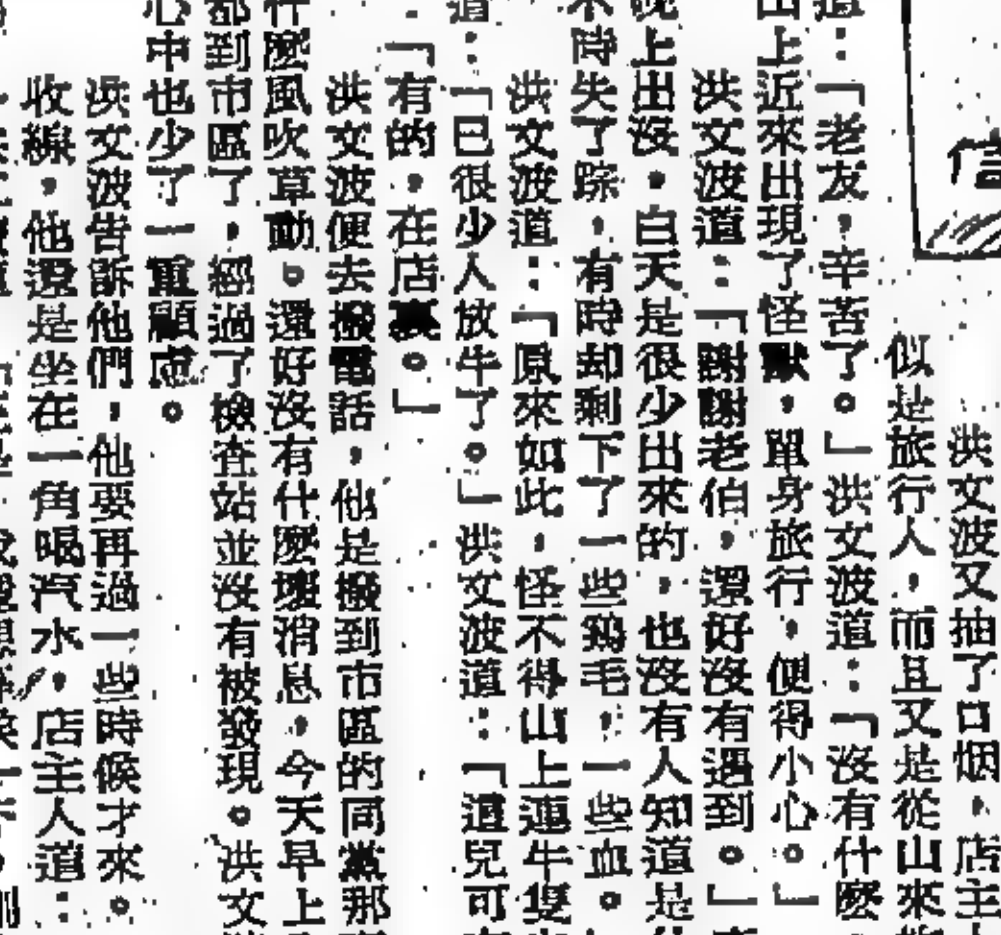 洪文波又抽了口烟，店主
似是旅行人，而且又是從山來
道：「老友，辛苦了。」洪文波道：「沒有什麼
山上近來出現了怪獸，單身旅行，便得小心。」
洪文波道：「謝謝老伯，還好沒有遇到。」
晚上出沒，白天是很少出來的，也沒有人知道是
不時失了踪，有時却剩下了一些鷄毛，一些血。
洪文波道：「原來如此，怪不得山上連牛隻
道：「已很少人放牛了。」洪文波道：「這兒可
「有的，在店裏。」
洪文波便去撥電話，他是撥到市區的同黨那
什麼風吹草動。還好沒有什麼壞消息，今天早上
都到市區了，經過了檢查站並沒有被發現。洪文
心中也少了一重顧慮。
洪文波告訴他們，他要再過一些時候才來。
收線，他還是坐在一角喝汽水，店主人道：
信